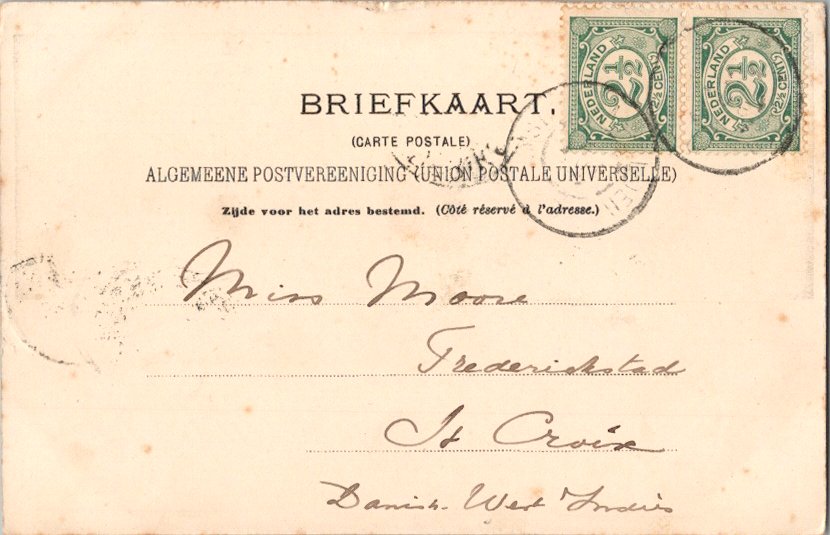 NEDERLAND 2½ (2½ CENT)
NEDERLAND 2½ (2½ CENT)
BRIEFKAART.
(CARTE POSTALE)
ALGEMEENE POSTVEREENIGING (UNION POSTALE UNIVERSELLE)
Zijde voor het adres bestemd. (Côté réservé à l'adresse.)
Miss Moore
Frederickstad
St Croix
Danish West Indies